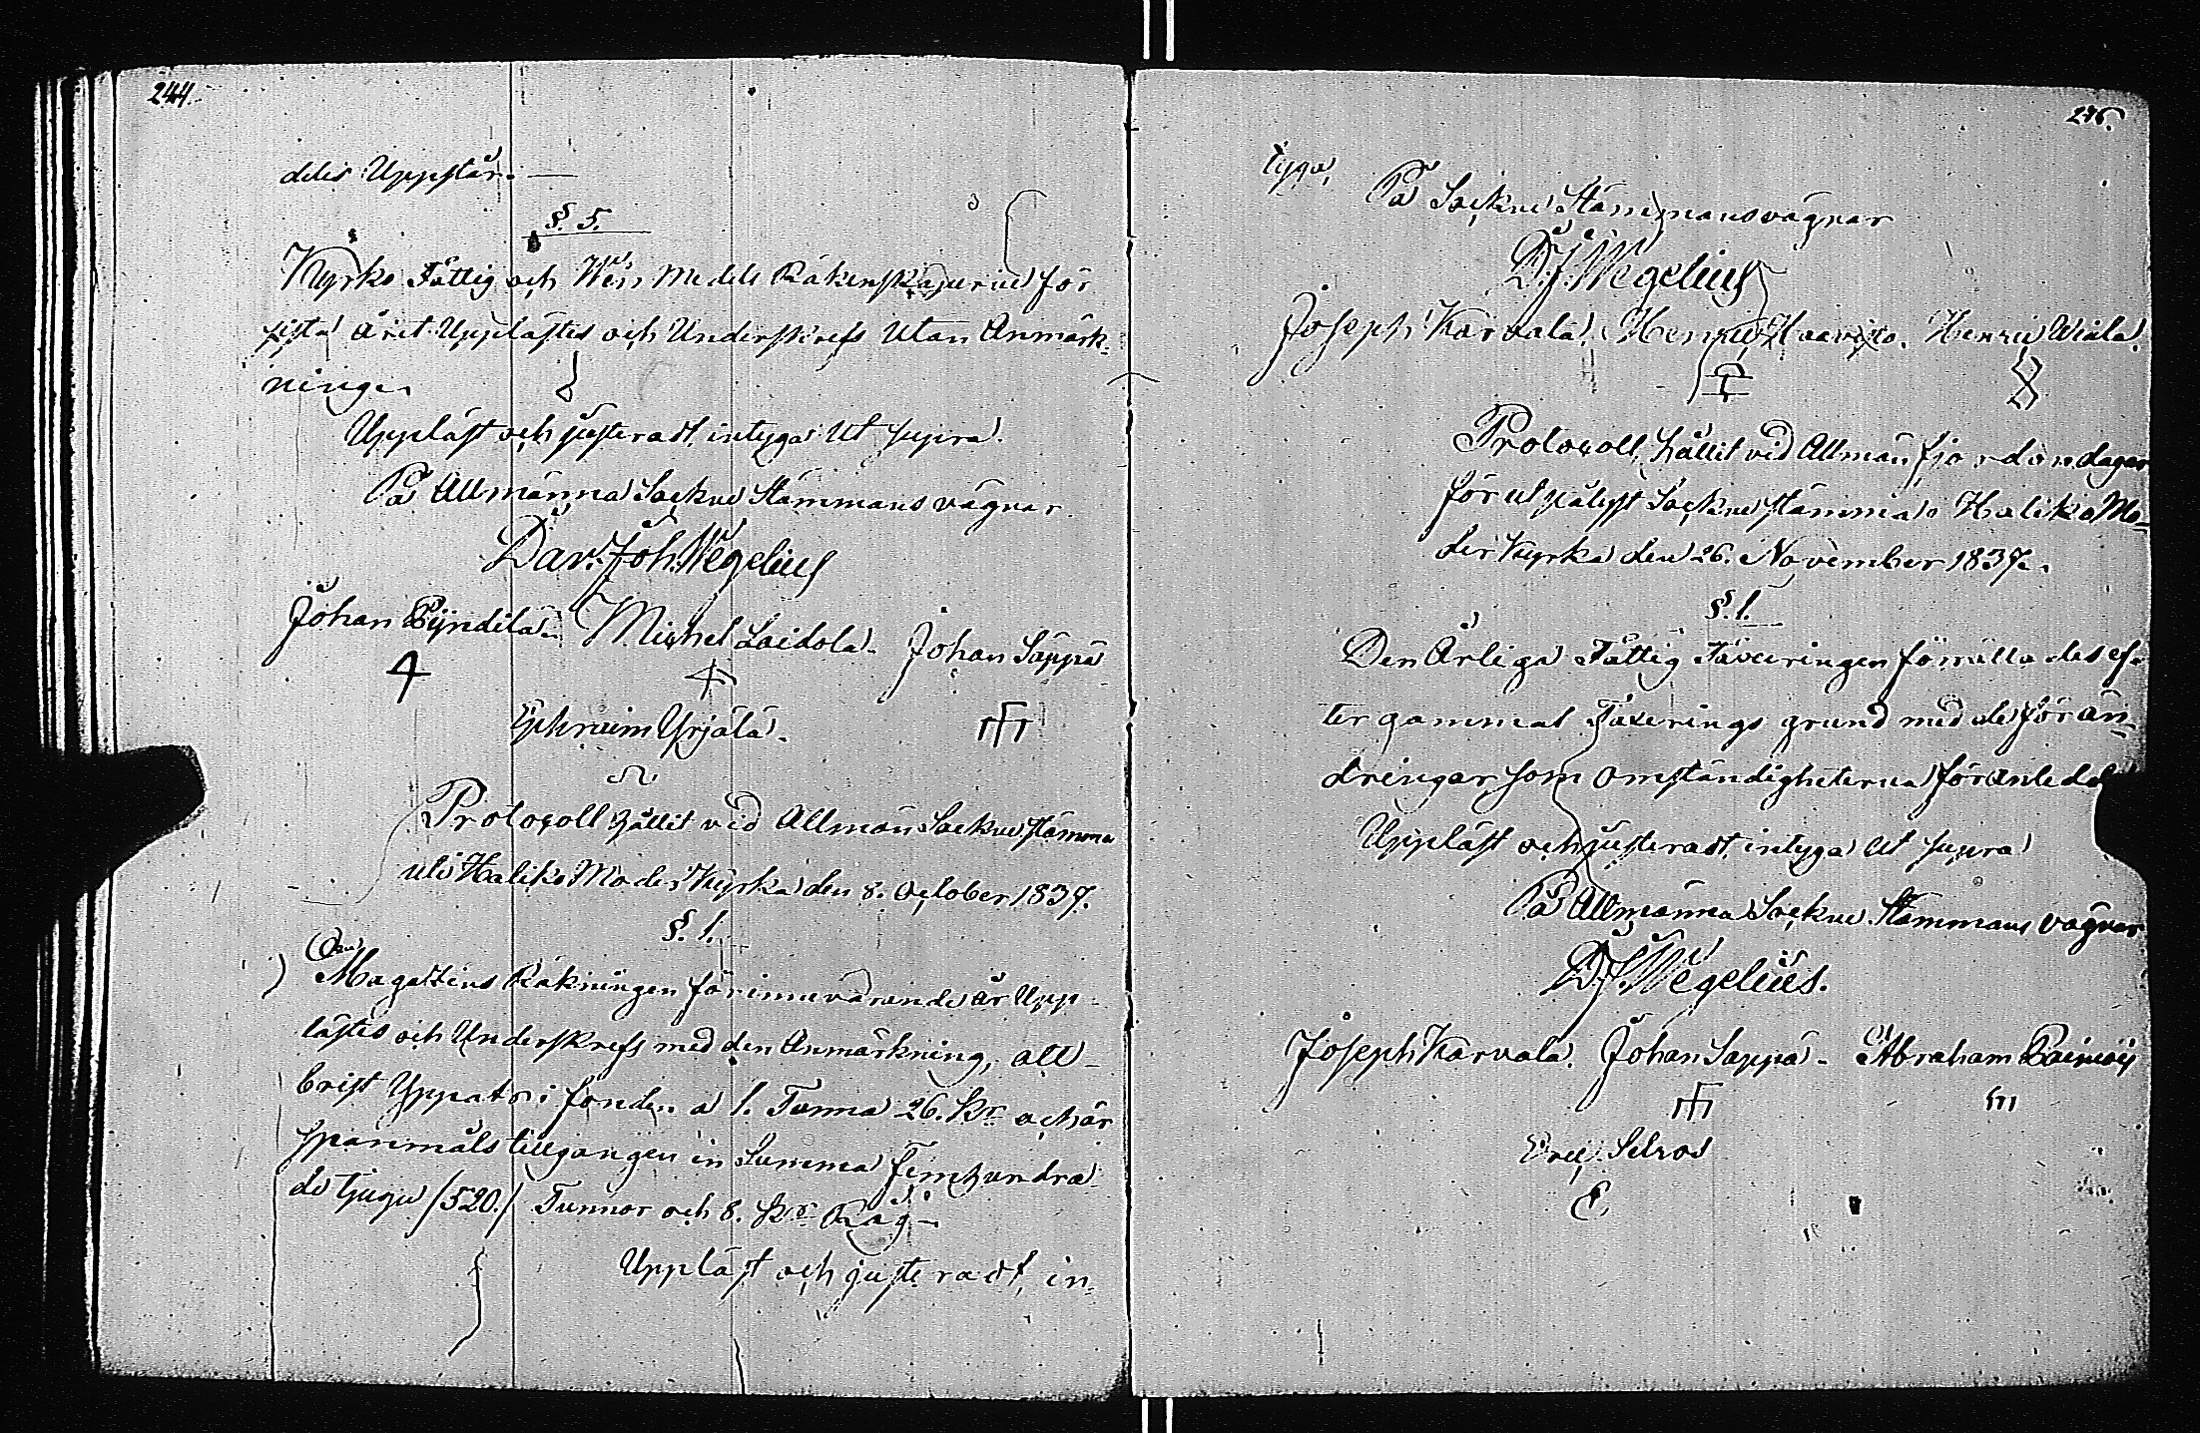 244.
deles Uppstår.
§. 5.
Kyrko Fattig och Win Medels Räkenskaperne för
sista året Upplästes och Underskrefs utan Anmärk-
ning.
Uppläst och justeradt, intyga Ut supra.
På Allmänna Sockne Stämmans vägnar
Dav. Joh. Wegelius
Johan Pyndilä. Michel Laidola. Johan Sappä
Ephraim Yrjälä.
Protocoll hållit vid Allmän Sockne Stämma
uti Haliko Moder Kyrka den 8. October 1837.
§. 1.
Magazins Räkningen för innevarande år Upp-
lästes och Underskrefs med den Anmärkning, att
brist Uppstår i fonden a 1. Tunna 26. Kr och är
spanmåls tillgången in Summa Femhundra-
de tjugu /520./ Tunnor och 8. Kr Råg.
Uppläst och justeradt, in-
tyga,
På Sockne Stämmans vägnar
D. J. Wegelius
Joseph Karvala. Henric Haavisto. Henric Wiala.
Protocoll, hållit vid Allmän fjordondagar
förut pålyst Sockne stämma i Haliko Mo-
der Kyrka den 26. November 1837.
§. 1.
Den Årliga Fattig Taxeringen förrättades ef-
ter gammal Taxerings grund med de förän-
dringar, som omständigheterna föranledde
Uppläst och justeradt, intyga Ut supra
På Allmänna Sockne Stämmans vägnar
D. J. Wegelius.
Joseph Karvala. Johan Sappä. Abraham
Eric Selros
E